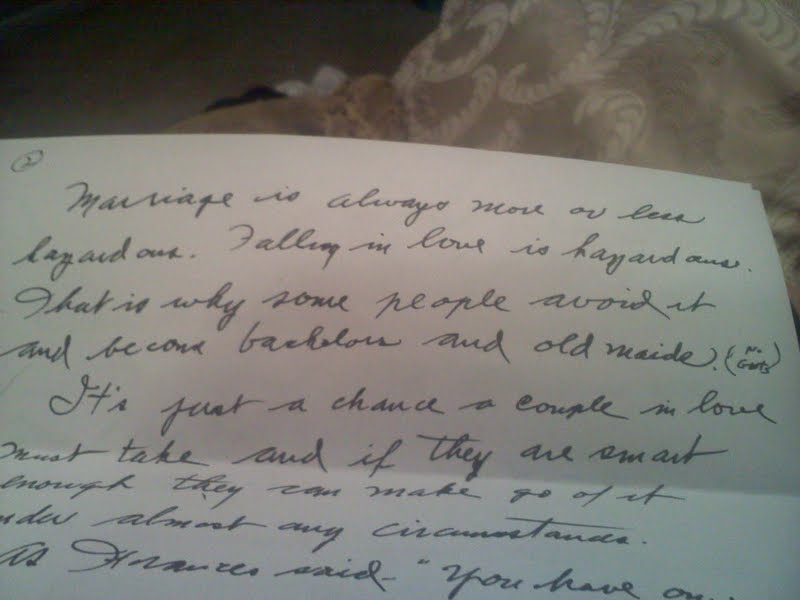 2
Marriage is always more or less
hazardous. Falling in love is hazardous.
That is why some people avoid it
and become bachelors and old maids. (No Guts)
It's just a chance a couple in love
must take and if they are smart
enough they can make go of it
under almost any circumstances.
As Frances said - "You have